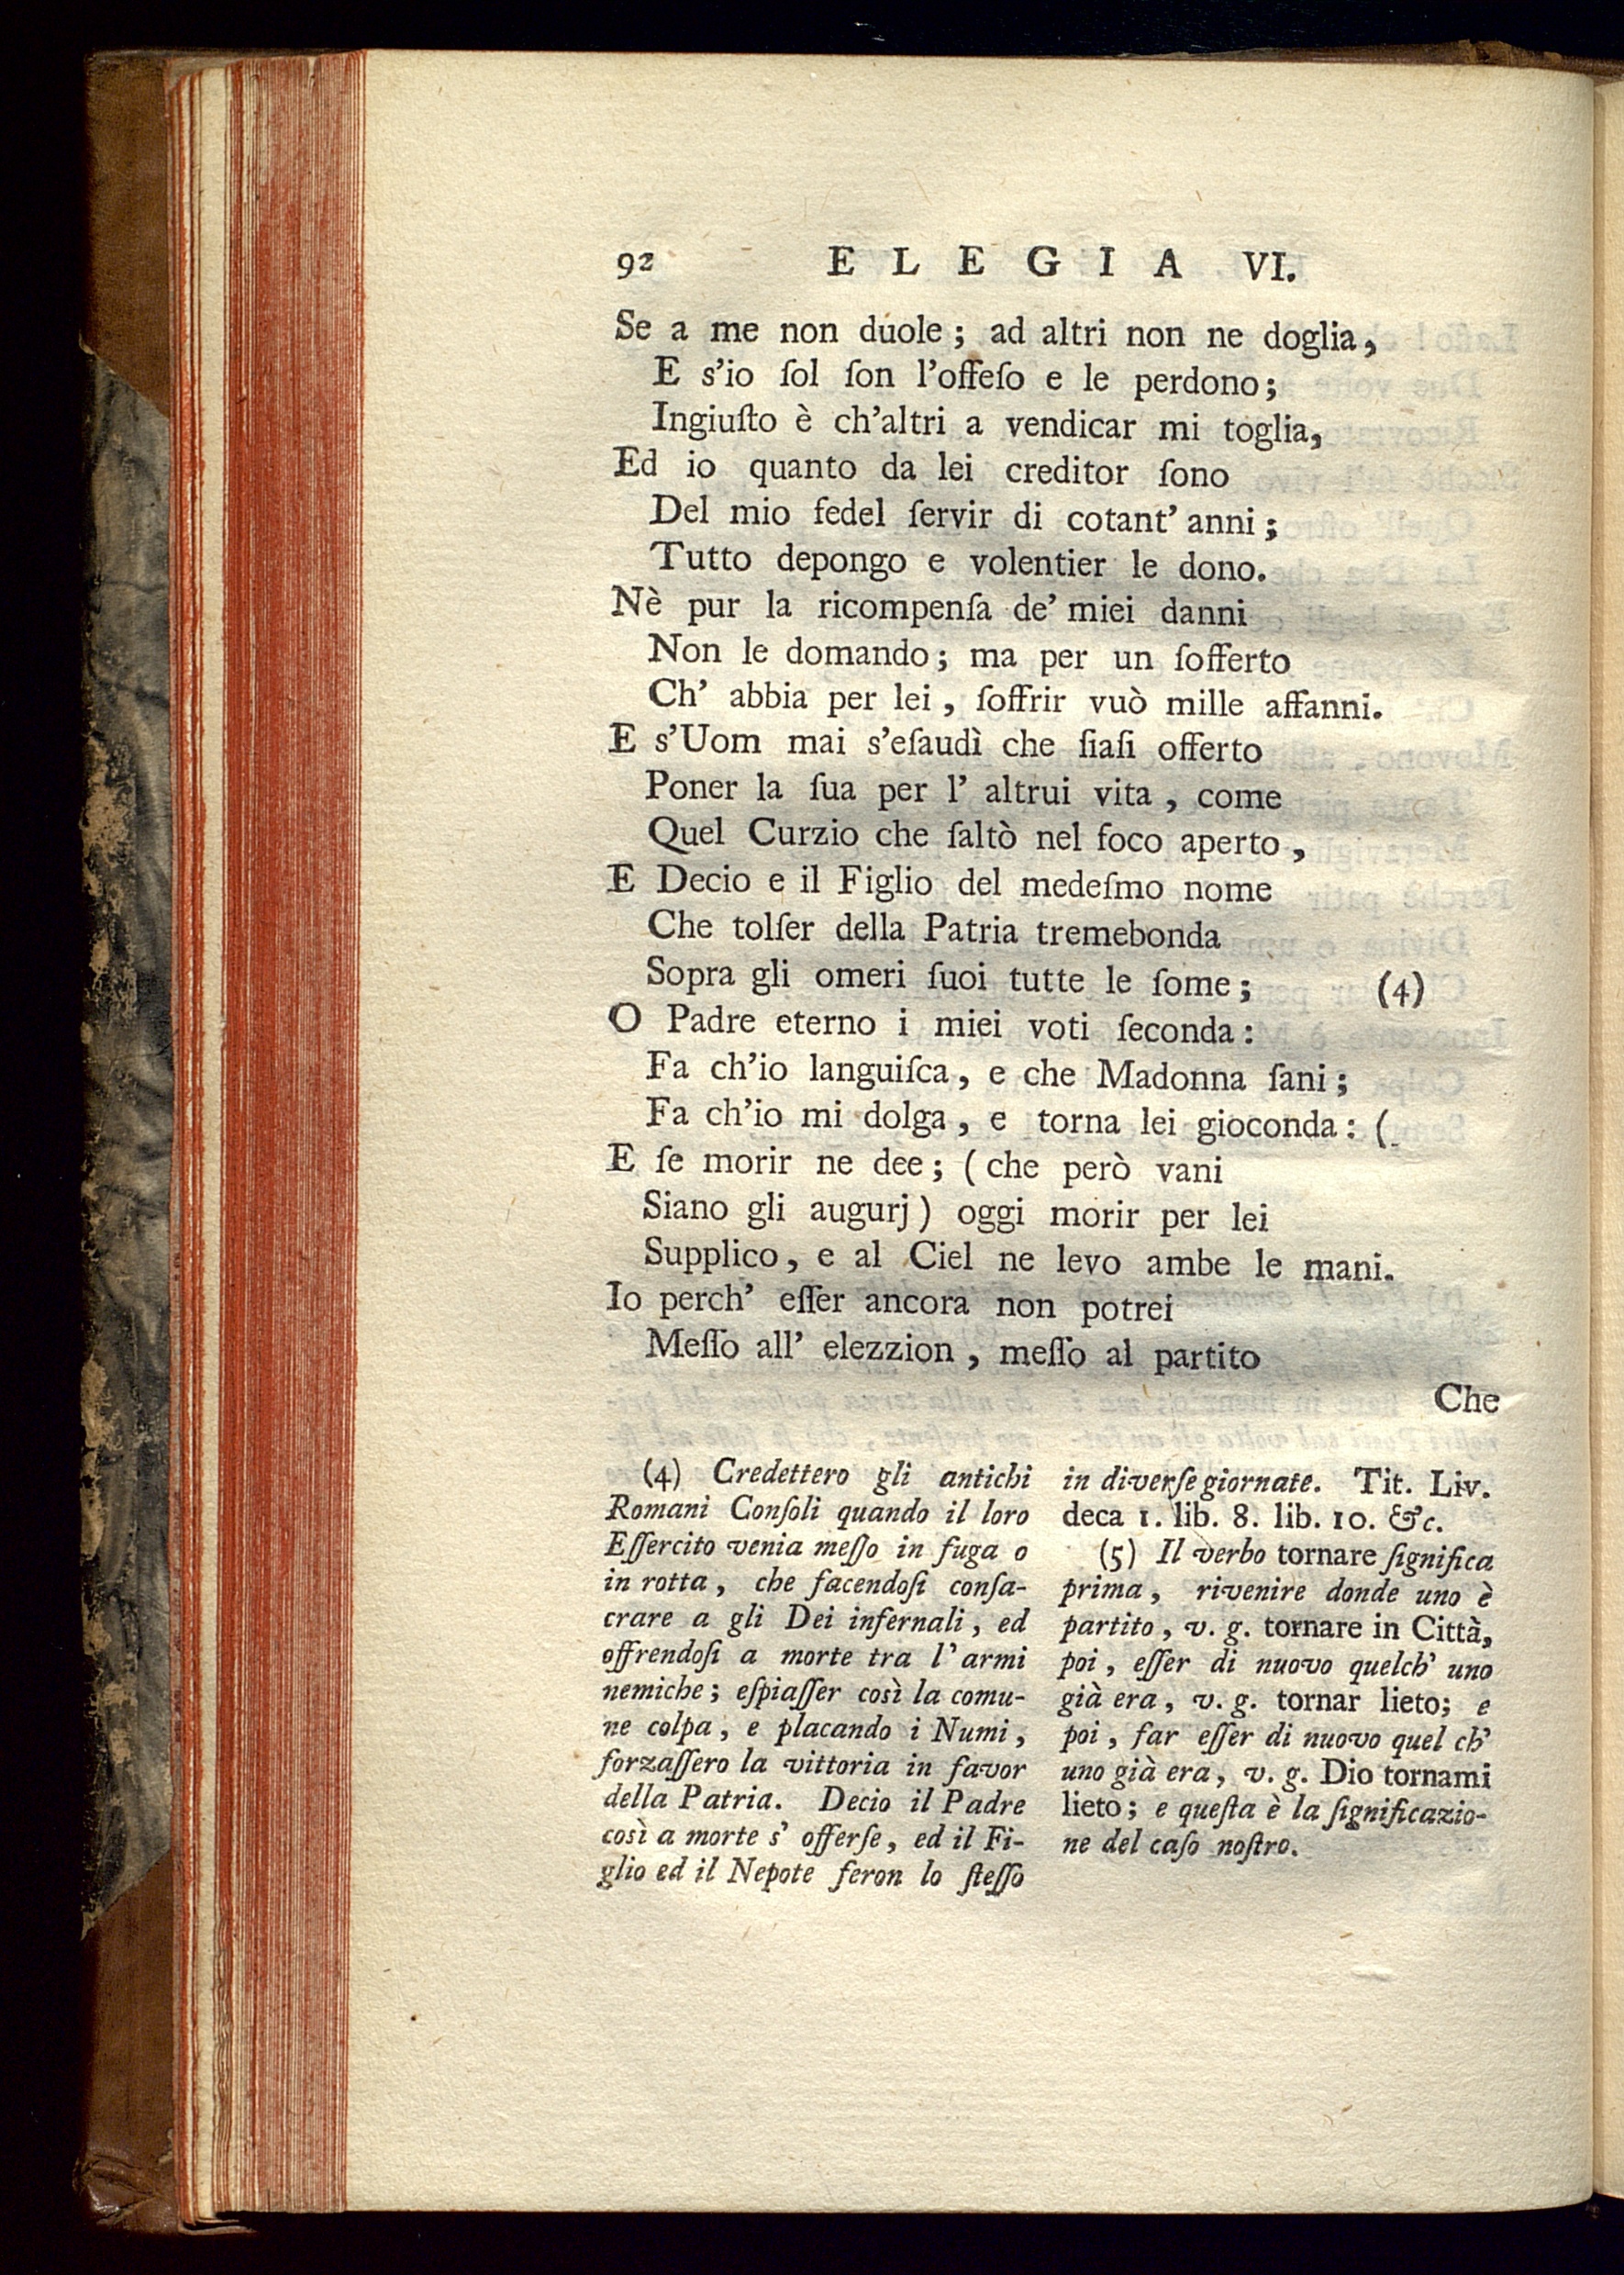 92 ELEGIA VI.
Se a me non duole; ad altri non ne doglia,
E s'io ſol ſon l'offeſo e le perdono;
Ingiuſto è ch'altri a vendicar mi toglia,
Ed io quanto da lei creditor ſono
Del mio fedel ſervir di cotant' anni;
Tutto depongo e volentier le dono.
Nè pur la ricompenſa de' miei danni
Non le domando; ma per un ſofferto
Ch' abbia per lei, ſoffrir vuò mille affanni.
E s'Uom mai s'eſaudì che ſiaſi offerto
Poner la ſua per l' altrui vita, come
Quel Curzio che ſaltò nel foco aperto,
E Decio e il Figlio del medeſmo nome
Che tolſer della Patria tremebonda
Sopra gli omeri ſuoi tutte le ſome; (4)
O Padre eterno i miei voti ſeconda:
Fa ch'io languiſca, e che Madonna ſani;
Fa ch'io mi dolga, e torna lei gioconda: (
E ſe morir ne dee; (che però vani
Siano gli augurj) oggi morir per lei
Supplico, e al Ciel ne levo ambe le mani.
Io perch' eſſer ancora non potrei
Meſſo all' elezzion, meſſo al partito
Che
(4) Credettero gli antichi
Romani Conſoli quando il loro
Eſſercito venia meſſo in fuga o
in rotta, che facendoſi conſa-
crare a gli Dei infernali, ed
offrendoſi a morte tra l' armi
nemiche; eſpiaſſer così la comu-
ne colpa, e placando i Numi,
forzaſſero la vittoria in favor
della Patria. Decio il Padre
così a morte s' offerſe, ed il Fi-
glio ed il Nepote feron lo ſteſſo
in diverſe giornate. Tit. Liv.
deca 1. lib. 8. lib. 10. &c.
(5) Il verbo tornare ſignifica
prima, rivenire donde uno è
partito, v. g. tornare in Città,
poi, eſſer di nuovo quelch' uno
già era, v. g. tornar lieto; e
poi, far eſſer di nuovo quel ch'
uno già era, v. g. Dio tornami
lieto; e queſta è la ſignificazio-
ne del caſo noſtro.